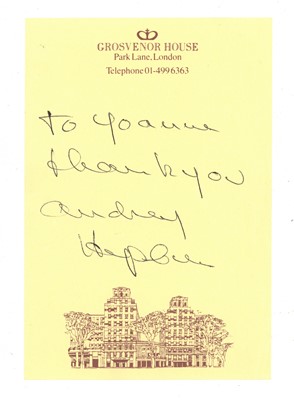 GROSVENOR HOUSE
Park Lane, London
Telephone 01-499 6363
To Yoanne
thank you
Audrey
Hepburn